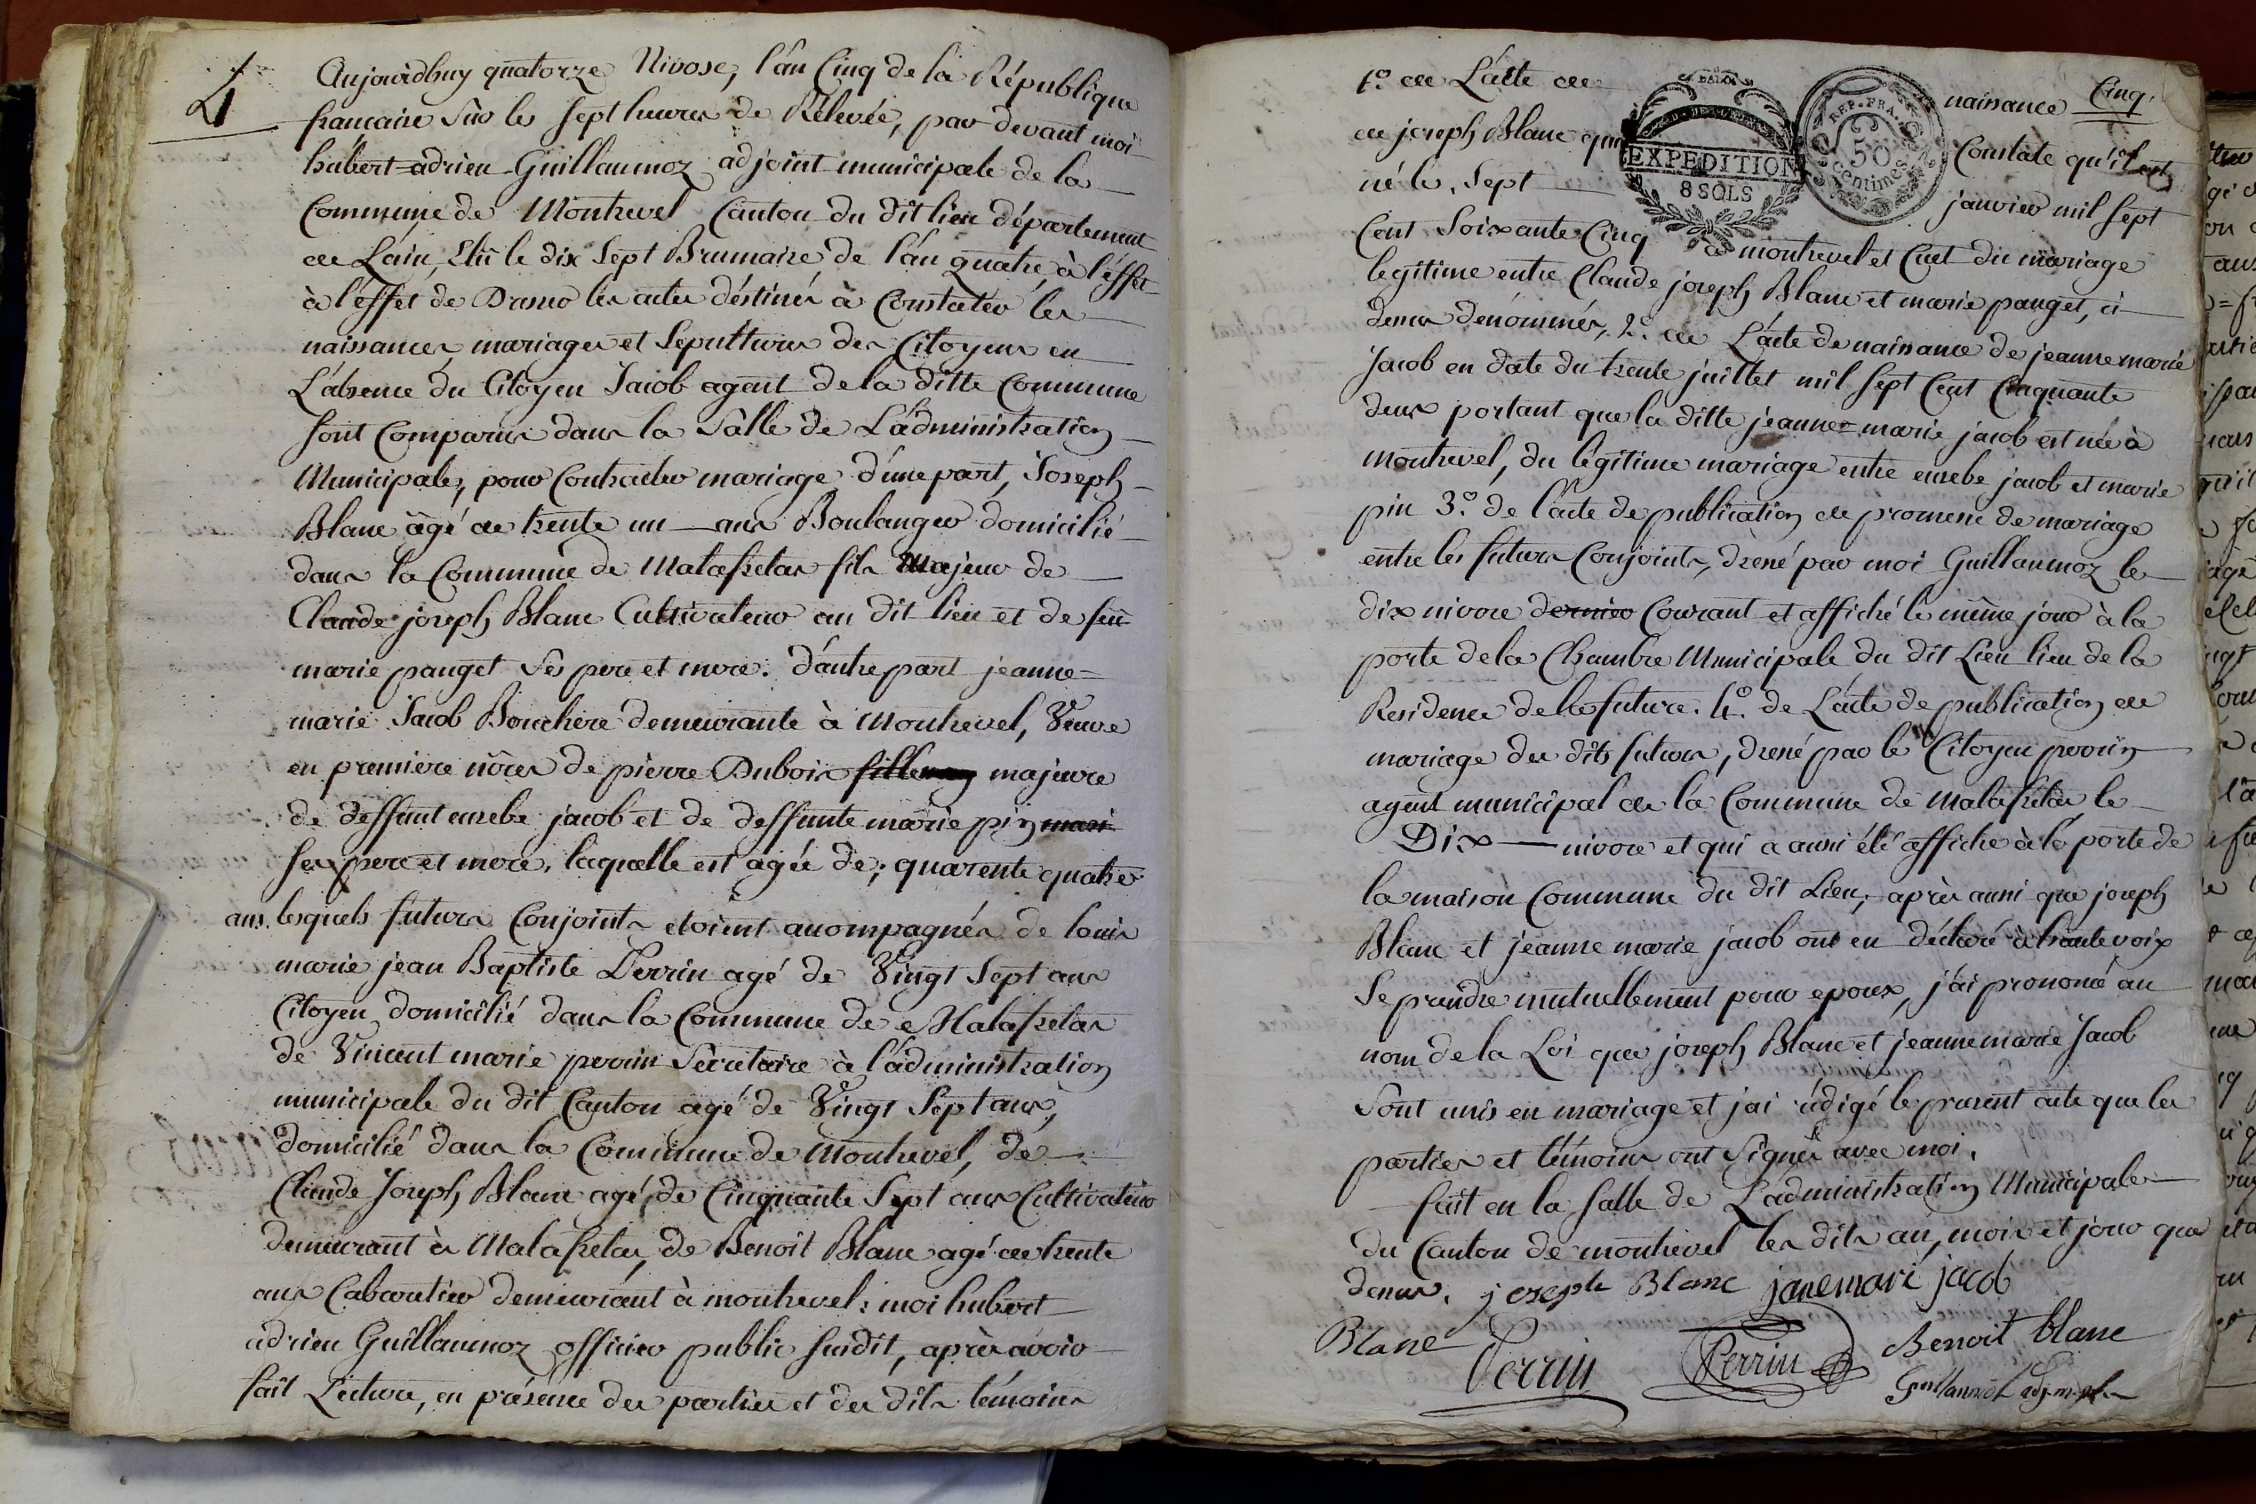 4
Aujourdhuy quatorze Nivose, l'an Cinq de la République
francaire Sur les Sept heures de Relevée, par devant moi
hubert=adrien Guillaumoz adjoint municipale de la
Commune de Montrevel Canton du dit lieu département
de Lain, Elû le dix Sept Brumaire de l'an quatre, à l'éffet
à l'éffet de Dresser les actes déstinés à Constater les
naissances, mariages et Sépultures des Citoyens en
L'absence du Citoyen Jacob agent de la ditte Commune
Sont Comparus dans la Salle de L'administration
Municipale, pour Contracter mariage d'une part, Joseph
Blanc âgé de trente un ans Boulanger domicilié
dans la Commune de Malafretas fils Majeur de
Claude joseph Blanc Cultivateur au dit lieu et de feû
marie pauget Ses pere et mere. d'autre part jeanne=
marie Jacob Bouchere demeurante à Montrevel, Veuve
en premiere nôces de pierre Dubois fille majeure
de deffunt eusebe jacob et de deffunte marie pin
Ses pere et mere, laquelle est agée de, quarente quatre
ans. lesquels futurs Conjoints etoient accompagnés de louis
marie jean Baptiste Perrin agé de Vingt Sept ans
Citoyen domicilié dans la Commune de Malafretas
de Vincent marie perrin Sécretaire à l'administration
municipale du dit Canton agé de Vingt Sept ans,
domicilié dans la Commune de Montrevel, de
Claude Joseph Blanc agé de Cinquante Sept ans Cultivateur
demeurant à Malafretas, de Benoit Blanc agé de trente
ans Cabaretier demeurant à montrevel; moi hubert
adrien Guillaumoz officier public Susdit, après avoir
fait Lecture, en présence des parties et des dits témoins
1.º de L'acte de naissance Cinq.
de joseph Blanc qui Constate qu'il est
né le, Sept janvier mil Sept
EXPEDITION
8 SOLS
REP. FRA.
50
Centimes
Cent Soixante Cinq à montrevel et C'uet du mariage
legitime entre Claude joseph Blanc et marie pauget, ci
dessus denommés, 2.º de L'acte de naissance de jeanne marie
Jacob en date du trente juillet mil Sept Cent Cinquante
deux portant que la ditte jeanne=marie jacob est née à
Montrevel, du légitime mariage entre eusebe jacob et marie
pin 3.º de l'acte de publication de promesse de mariage
entre les futurs Conjoints, dressé par moi Guillaumoz le
dix nivose dernier Courant et affiché le même jour à la
porte de la Chambre Municipale du dit Lieu lieu de la
Residence de la future. 4.º de L'acte de publication de
mariage des dits futurs, dressé par le Citoyen perrin
agent municipal de la Commune de Malafretas le
Dix nivose et qui a aussi été affiche à la porte de
la maison Commune du dit Lieu, après aussi que joseph
Blanc et jeanne marie jacob ont eu déclaré à haute voix
Se prendre mutuellement pour epoux, j'ai prononcé au
nom de la Loi que joseph Blanc et jeanne marie Jacob
Sont unis en mariage et j'ai rédigé le present acte que les
parties et témoins ont Signés avec moi.
fait en la Salle de L'administration Municipale
du Canton de montrevel les dits an, mois et jour que
dessus. joseph Blanc janemari jacob
Blanc Perrin Perrin Benoit blanc
Guillaumoz adj. m.pl